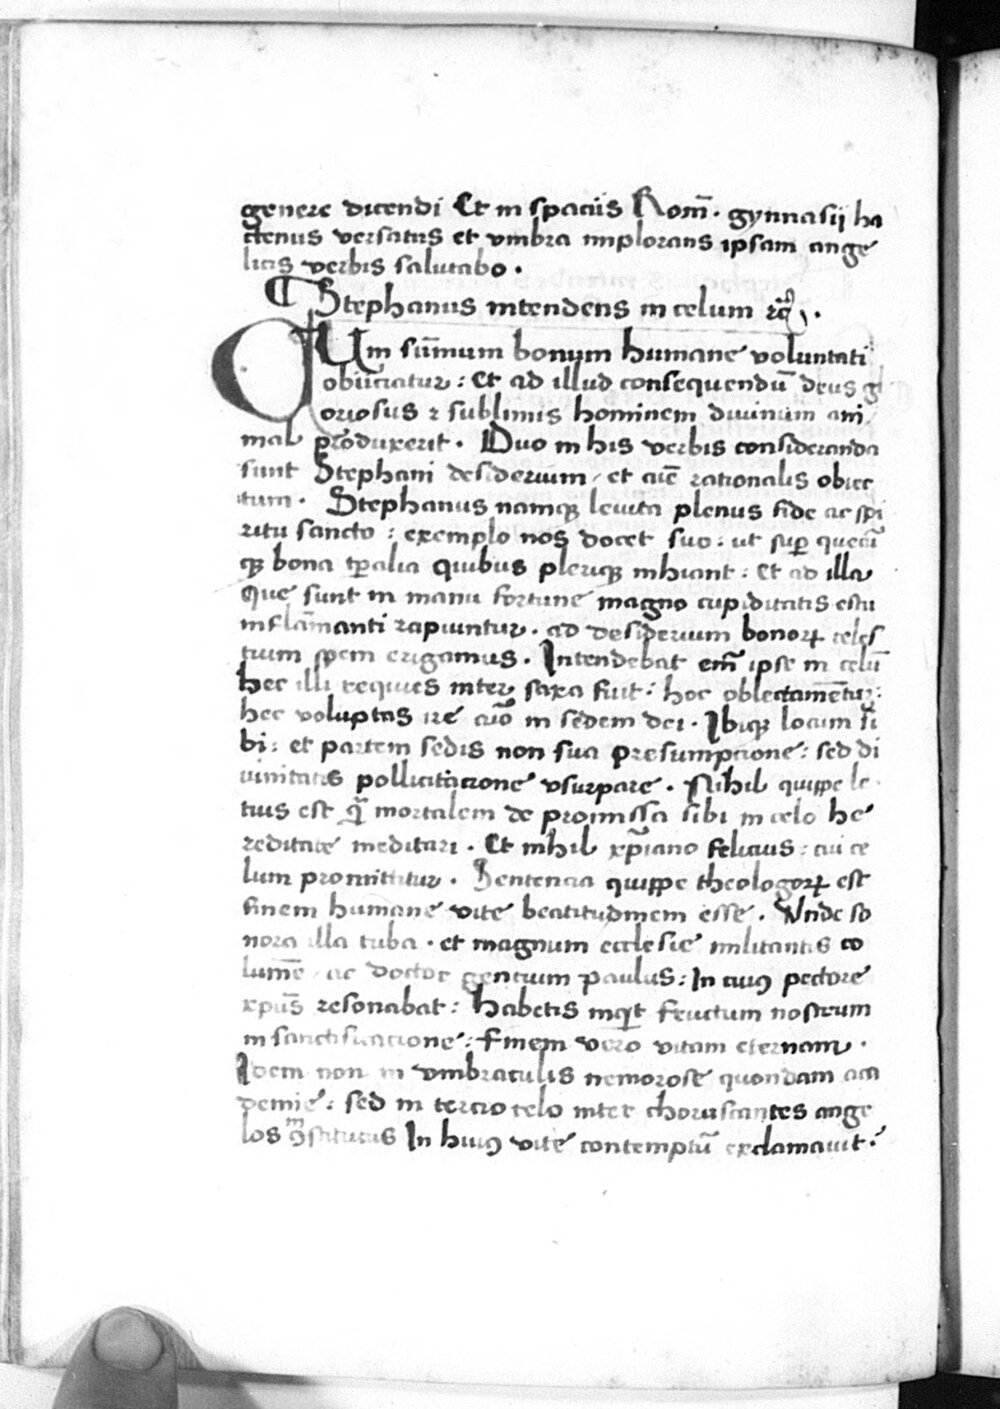 genere dicendi Et in spaciis Rom̄. gymnasii ha
ctenus versatus et vmbra implorans ipsam ange
licis verbis salutabo.
Stephanus intendens in celum ⁊cͣ.
CUm sum̄mum bonum humane voluntati
obiiciatur: Et ad illud consequendū deus gl
oriosus ⁊ sublimis hominem diuinum ani
mal produxerit. Duo in his verbis consideranda
sunt Stephani desiderium, et aīe rationalis obiec
tum. Stephanus namqꝫ leuita plenus fide ac spi
ritu sancto: exemplo nos docet suo: ut suꝑ quecū
qꝫ bona tꝑalia quibus pleriqꝫ inhiant: Et ad illa
que sunt in manu fortune magno cupiditatis estu
inflam̄anti rapiuntur. ad desiderium bonoꝝ celes
tium spem erigamus. Intendebat em̄ ipse in celū
hec illi requies inter saxa fuit: hoc oblectamētū:
hec voluptas ire aīo in sedem dei. Ibiqꝫ locum si
bi: et partem sedis non sua presumpcione: sed di
uinitatis pollicitacione vsurpare. Nihil quippe le
tius est qͣ̄ mortalem de promissa sibi in celo he
reditate meditari. Et nihil xp̄iano felicius: cui ce
lum promittitur. Sentencia quippe theologoꝝ est
finem humane vite beatitudinem esse. Vnde so
nora illa tuba. et magnum ecclesie militantis co
lumē ac doctor gentium paulus: In cuiꝰ pectore
xpūs resonabat: Habetis inquit fructum nostrum
in sanctificacione: finem vero vitam eternam.
Idem non in vmbraculis nemorose quondam aca
demie: sed in tercio celo inter choruscantes ange
los ꝯstitutus In huiꝰ vite contemptū exclamauit: